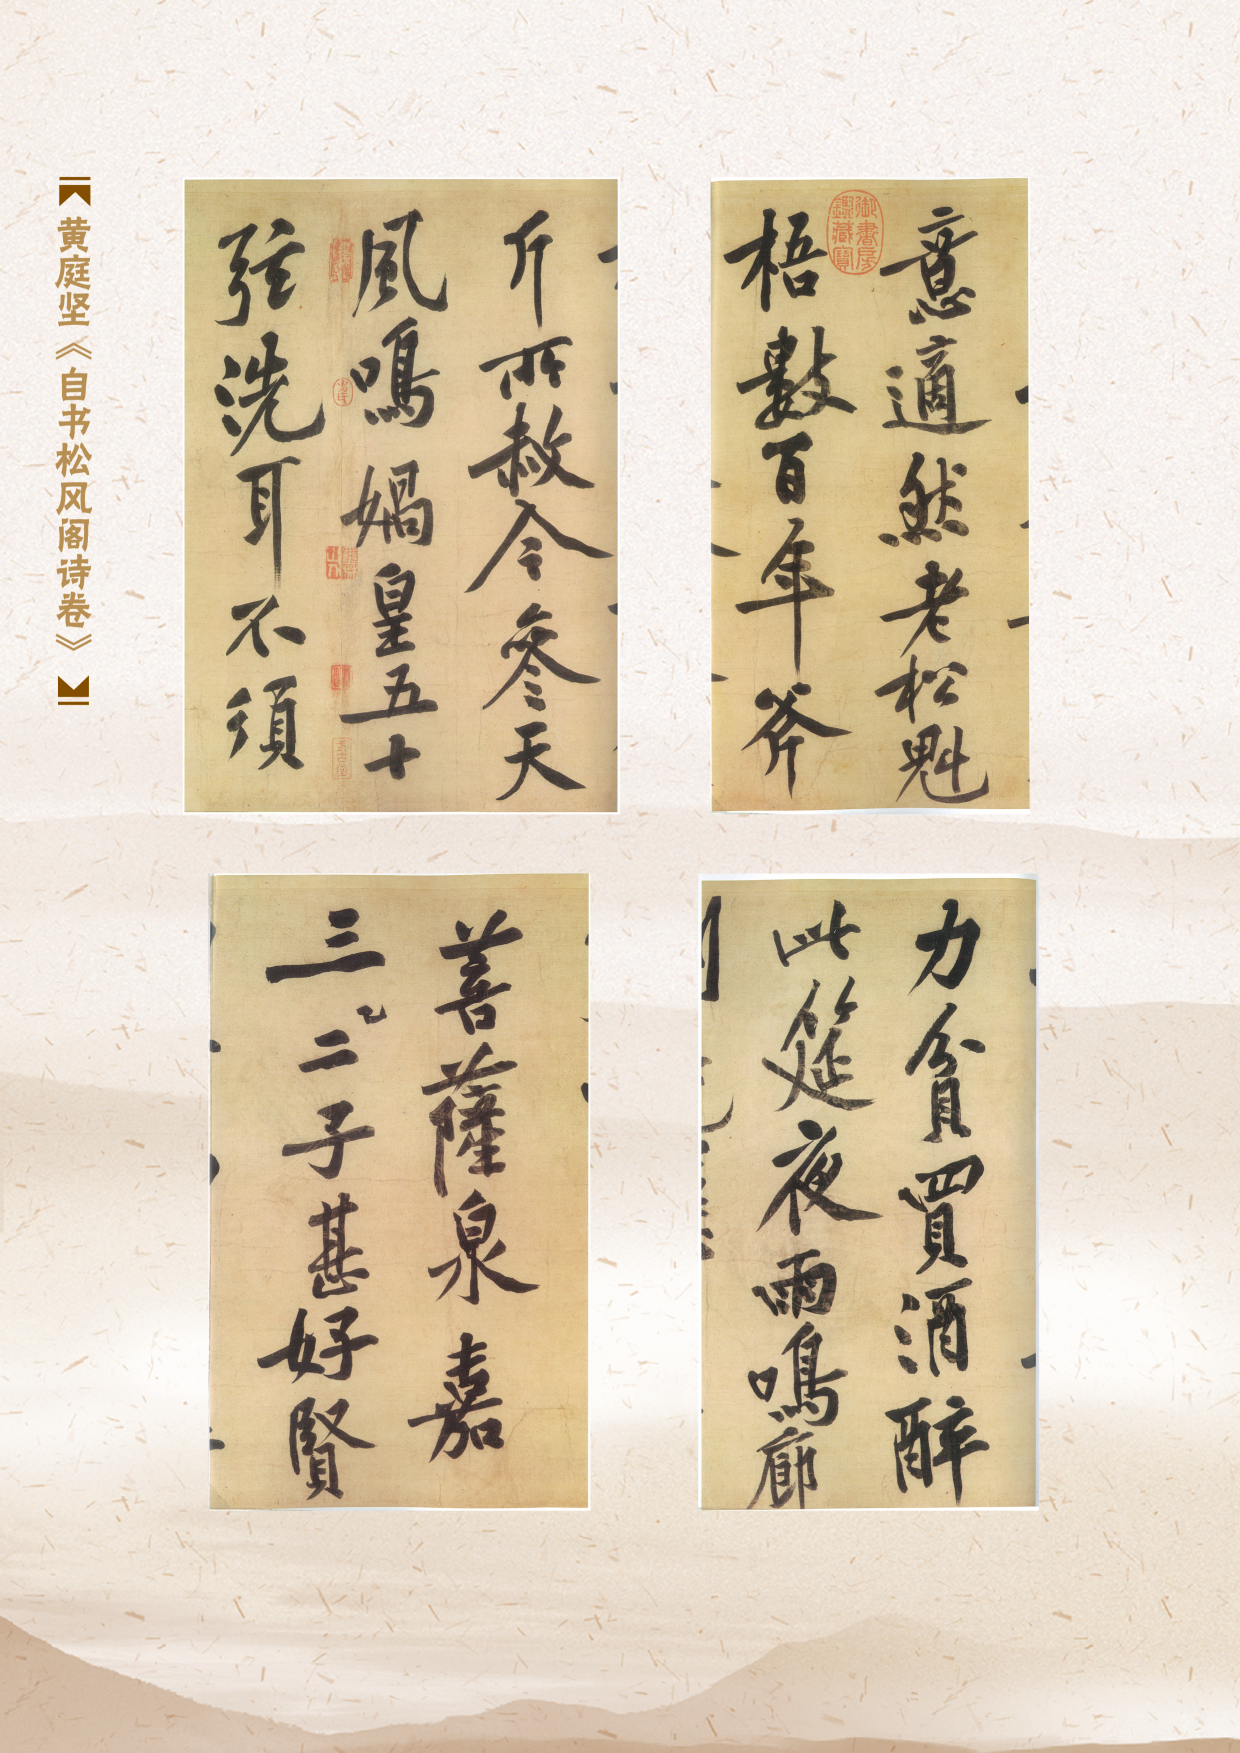 意適然老松魁
御書房鑑藏寶
梧數百年斧
斤所赦令參天
風鳴媧皇五十
弦洗耳不須
力貧買酒醉
此筵夜雨鳴廊
菩薩泉嘉
三二子甚好賢
【黄庭坚《自书松风阁诗卷》】